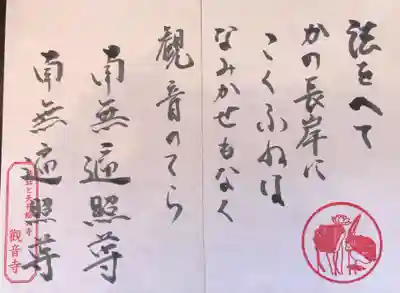 法をへて
かの長岸に
こくふねは
なみかせもなく
観音のてら
南無遍照尊
南無遍照尊
觀音寺